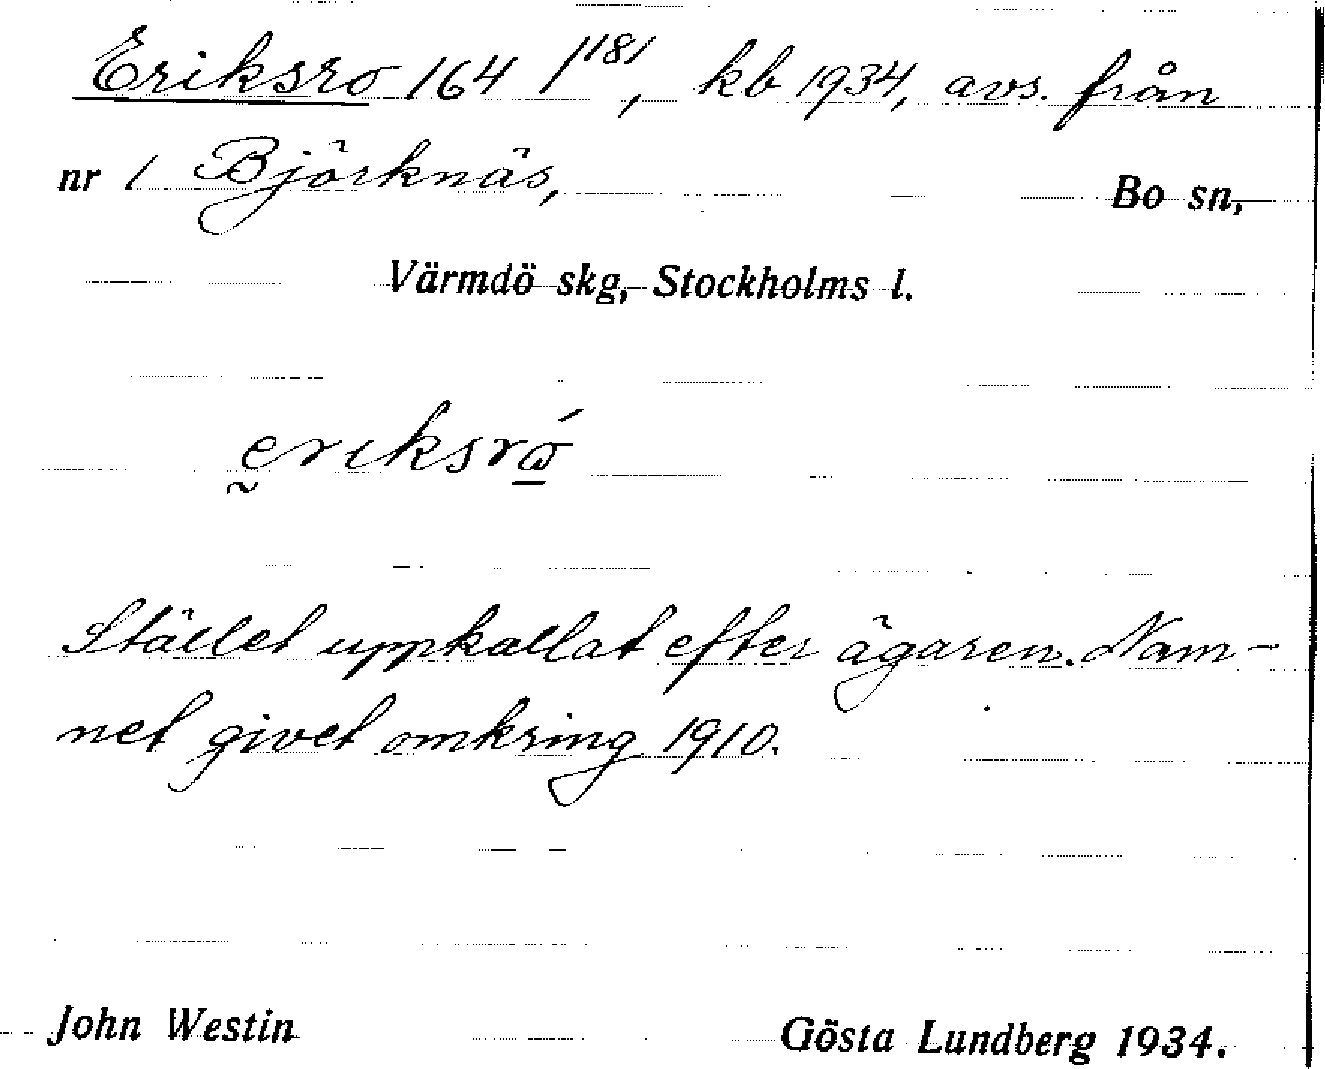 Eriksro 164 /181, kb 1934, avs. från
nr 1 Björknäs, Bo sn,
Värmdö skg, Stockholms l.
eriksró
Stället uppkallat efter ägaren. Nam-
net givet omkring 1910.
John Westin Gösta Lundberg 1934.